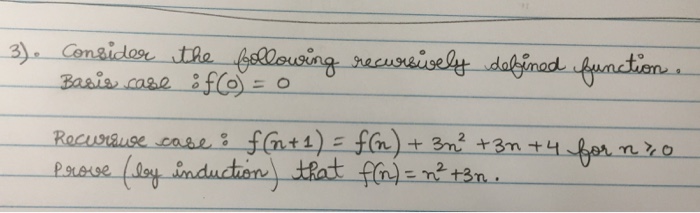 3). Consider the following recursively defined function.
Basis case : f(0) = 0
Recursive case : f(n+1) = f(n) + 3n² + 3n + 4 for n ≥ 0
Prove (by induction) that f(n) = n² + 3n.